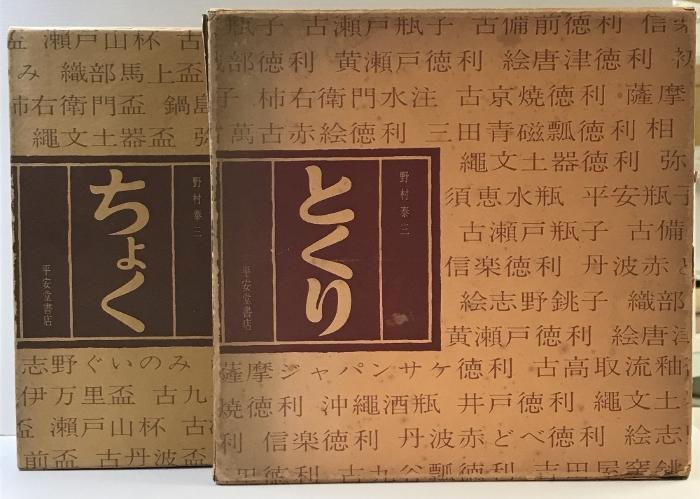 盃 瀬戸山杯 古
み 織部馬上盃
柿右衛門盃 鍋島
繩文土器盃 弥
野村泰三
ちょく
平安堂書店
志野ぐいのみ
伊万里盃 古九
盃 瀬戸山杯 古
前盃 古丹波盃
瓶子 古瀬戸瓶子 古備前徳利 信楽
部徳利 黄瀬戸徳利 絵唐津徳利 初
子 柿右衛門水注 古京焼徳利 薩摩
萬古赤絵徳利 三田青磁瓢徳利 相
繩文土器徳利 弥
須恵水瓶 平安瓶子
古瀬戸瓶子 古備
信楽徳利 丹波赤ど
絵志野銚子 織部
黄瀬戸徳利 絵唐津
野村泰三
とくり
平安堂書店
薩摩ジャパンサケ徳利 古高取流釉
焼徳利 沖繩酒瓶 井戸徳利 繩文土
利 信楽徳利 丹波赤どべ徳利 絵志
田徳利 古九谷瓢徳利 吉田屋窯銚